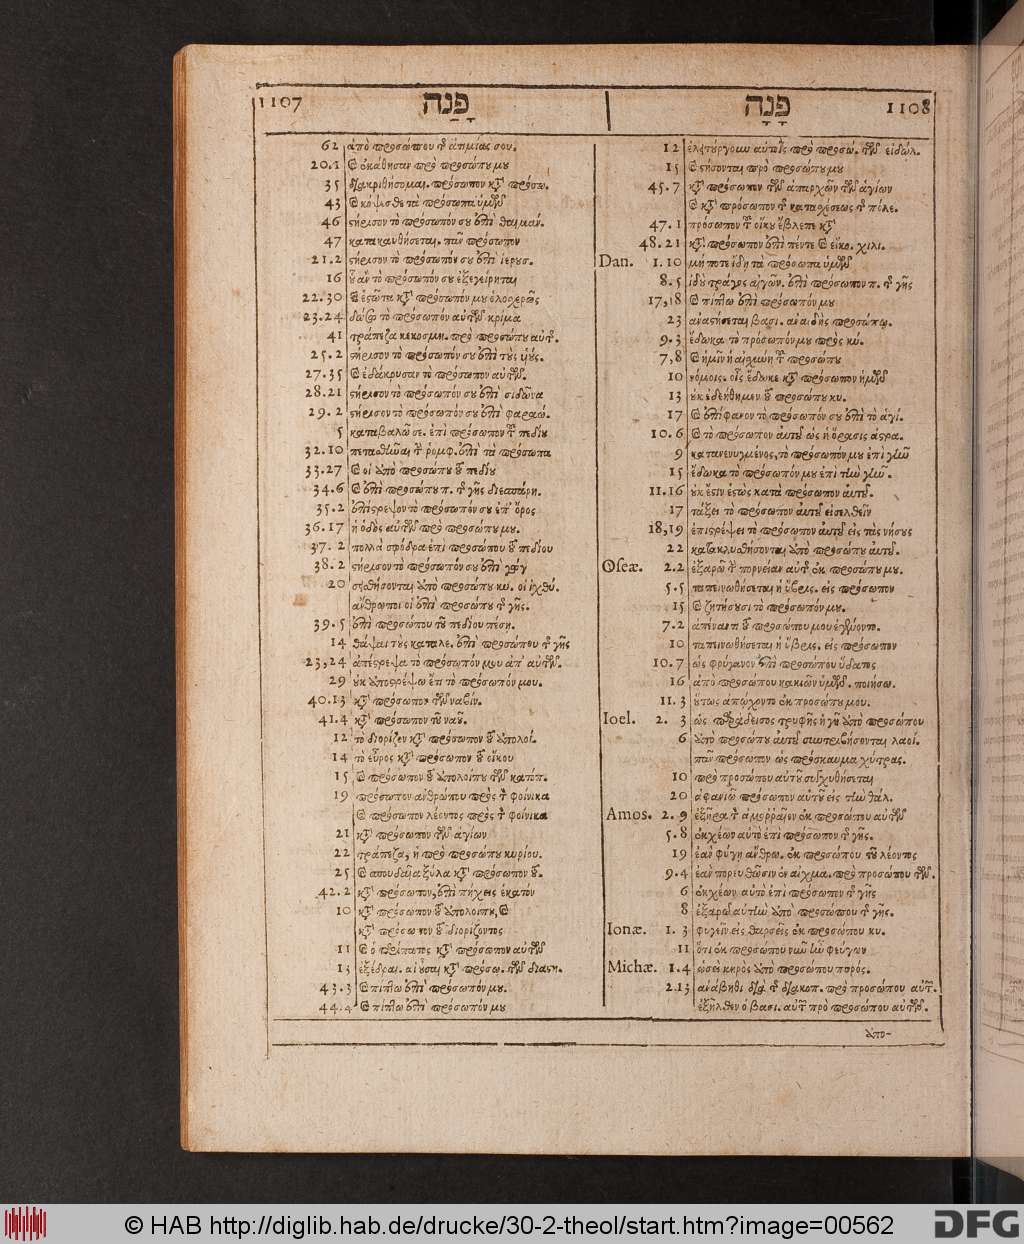 1107 פָּנַה
62 ἀπὸ προσώπου τ̃ ἀτιμίας σου.
20.1 καὶ ἐκάθησαν πρὸ προσώπου μου
35 διακριθήσομαι. πρόσωπον κτ̃ πρόσω.
43 καὶ κόψεσθε τὰ πρόσωπα ὑμῶν
46 στήρισον τὸ πρόσωπόν σου ἐπὶ θαιμάν.
47 κατακαυθήσεται. πᾶν πρόσωπον
21.2 στήρισον τὸ πρόσωπόν σου ἐπὶ ἱερουσ.
16 οὗ ἂν τὸ πρόσωπόν σου ἐξεγείρηται
22.30 καὶ ἑστῶτα κτ̃ πρόσωπόν μου ὁλοσχερῶς
23.24 δώσω τὸ πρόσωπόν αὐτῶν κρίμα
41 τράπεζα κεκοσμη. πρὸ προσώπου αὐτ̃.
25.2 στήρισον τὸ πρόσωπόν σου ἐπὶ τοὺς υἱούς.
27.35 καὶ ἐδάκρυσαν τὸ πρόσωπον αὐτῶν.
28.21 στήρισον τὸ πρόσωπόν σου ἐπὶ σιδῶνα
29.2 στήρισον τὸ πρόσωπόν σου ἐπὶ φαραώ.
5 καταβαλῶ σε. ἐπὶ πρόσωπον τ̃ πεδίου
32.10 πετασθῆναι τ̃ ῥομφ. ἐπὶ τὰ πρόσωπα
33.27 καὶ οἱ ὑπὸ προσώπου τοῦ πεδίου
34.6 καὶ ἐπὶ προσώπου π. τ̃ γῆς διεσπάρη.
35.2 ἐπίστρεψον τὸ πρόσωπόν σου ἐπ' ὄρος
36.17 ἡ ὁδὸς αὐτῶν πρὸ προσώπου μου.
37.2 πολλὰ σφόδρα ἐπὶ προσώπου τοῦ πεδίου
38.2 στήρισον τὸ πρόσωπόν σου ἐπὶ γὼγ
20 σεισθήσονται ὑπὸ προσώπου κυ. οἱ ἰχθύ.
ἄνθρωποι οἱ ἐπὶ προσώπου τ̃ γῆς.
39.5 ἐπὶ προσώπου τοῦ πεδίου πέσῃ.
14 θάψαι τοὺς καταλε. ἐπὶ προσώπου τ̃ γῆς
23,24 ἀπέστρεψα τὸ πρόσωπόν μου ἀπ' αὐτῶν.
29 οὐκ ἀποστρέψω ἔτι τὸ πρόσωπόν μου.
40.13 κτ̃ πρόσωπον τῶν ναβίν.
41.4 κτ̃ πρόσωπον τοῦ ναοῦ.
12 τὸ διορίζον κτ̃ πρόσωπον τοῦ ὑπολοί.
14 τὸ εὖρος κτ̃ πρόσωπον τοῦ οἴκου
15 καὶ πρόσωπον τοῦ ὑπολοίπου τῶν κατόπ.
19 πρόσωπον ἀνθρώπου πρὸς τ̃ φοίνικα
καὶ πρόσωπον λέοντος πρὸς τ̃ φοίνικα
21 κτ̃ πρόσωπον τῶν ἁγίων
22 τράπεζα, ἡ πρὸ προσώπου κυρίου.
25 καὶ σπουδαῖα ξύλα κτ̃ πρόσωπον τοῦ.
42.2 κτ̃ πρόσωπον, ἐπὶ πήχεις ἑκατόν
10 κτ̃ πρόσωπον τοῦ ὑπολοίπου, καὶ
κτ̃ πρόσωπον τοῦ διορίζοντος
11 καὶ ὁ περίπατος κτ̃ πρόσωπον αὐτῶν
13 ἐξέδραι. αἱ οὖσαι κτ̃ πρόσω. τῶν διαστη.
43.3 καὶ πίπτω ἐπὶ πρόσωπόν μου.
44.4 καὶ πίπτω ἐπὶ πρόσωπόν μου
פָּנָה 1108
12 ἐλειτούργουν αὐτοῖς πρὸ προσώ. τῶν εἰδώλ.
15 καὶ στήσονται πρὸ προσώπου μου
45.7 κτ̃ πρόσωπον τῶν ἀπαρχῶν τῶν ἁγίων
καὶ κτ̃ πρόσωπον τ̃ κατασχέσεως τ̃ πόλε.
47.1 πρόσωπον τοῦ οἴκου ἔβλεπε κτ̃
48.21 κτ̃ πρόσωπον ἐπὶ πέντε καὶ εἴκο. χιλι.
Dan. 1.10 μή ποτε ἴδῃ τὰ πρόσωπα ὑμῶν
8.5 ἰδοὺ τράγος αἰγῶν. ἐπὶ πρόσωπον π. τ̃ γῆς
17,18 καὶ πίπτω ἐπὶ πρόσωπόν μου
23 ἀναστήσεται βασι. ἀναιδὴς προσώπῳ.
9.3 ἔδωκα τὸ πρόσωπόν μου πρὸς κύ.
7,8 καὶ ἡμῖν ἡ αἰσχύνη τοῦ προσώπου
10 νόμοις. οἷς ἔδωκε κτ̃ πρόσωπον ἡμῶν
13 οὐκ ἐδεήθημεν τοῦ προσώπου κυ.
17 καὶ ἐπίφανον τὸ πρόσωπόν σου ἐπὶ τὸ ἁγί.
10.6 καὶ τὸ πρόσωπον αὐτοῦ ὡς ἡ ὅρασις ἀστρα.
9 κατανενυγμένος, τὸ πρόσωπόν μου ἐπὶ γῆν
15 ἔδωκα τὸ πρόσωπόν μου ἐπὶ τὴν γῆν.
11.16 οὐκ ἔστιν ἑστὼς κατὰ πρόσωπον αὐτοῦ.
17 τάξει τὸ πρόσωπον αὐτοῦ εἰσελθεῖν
18,19 ἐπιστρέψει τὸ πρόσωπον αὐτοῦ εἰς τὰς νήσους
22 κατακλυσθήσονται ὑπὸ προσώπου αὐτοῦ.
Oseæ. 2.2 ἐξαρῶ τ̃ πορνείαν αὐτ̃ ἐκ προσώπου μου.
5.5 ταπεινωθήσεται ἡ ὕβρις. εἰς πρόσωπον
15 καὶ ζητήσουσι τὸ πρόσωπόν μου.
7.2 ἀπέναντι τοῦ προσώπου μου ἐγένοντο.
10 ταπεινωθήσεται ἡ ὕβρις. εἰς πρόσωπον
10.7 ὡς φρύγανον ἐπὶ προσώπου ὕδατος
16 ἀπὸ προσώπου κακιῶν ὑμῶν. ποιήσω.
11.3 οὕτως ἀπῴχοντο ἐκ προσώπου μου.
Ioel. 2.3 ὡς παράδεισος τρυφῆς ἡ γῆ πρὸ προσώπου
6 ἀπὸ προσώπου αὐτοῦ συντριβήσονται λαοί.
πᾶν πρόσωπον ὡς πρόσκαυμα χύτρας.
10 πρὸ προσώπου αὐτοῦ συγχυθήσεται
20 ἀφανιῶ πρόσωπον αὐτοῦ εἰς τὴν θάλ.
Amos. 2.9 ἐξῆρα τ̃ ἀμοῤῥαῖον ἐκ προσώπου αὐτῶν
5.8 ἐκχέων αὐτὸ ἐπὶ πρόσωπον τ̃ γῆς.
19 ἐὰν φύγῃ ἄνθρω. ἐκ προσώπου τοῦ λέοντος
9.4 ἐὰν πορευθῶσιν ἐν αἰχμα. πρὸ προσώπου τῶν.
6 ἐκχέων αὐτὸ ἐπὶ πρόσωπον τ̃ γῆς
8 ἐξαρῶ αὐτὴν ἀπὸ προσώπου τ̃ γῆς.
Ionæ. 1.3 φυγεῖν εἰς θαρσεῖς ἐκ προσώπου κυ.
11 ὅτι ἐκ προσώπου κυ ἦν φεύγων
Michæ. 1.4 ὡσεὶ κηρὸς ἀπὸ προσώπου πυρός.
2.13 ἀνάβηθι διὰ τ̃ διακοπ. πρὸ προσώπου αὐτ̃.
ἐξῆλθεν ὁ βασι. αὐτ̃ πρὸ προσώπου αὐτῶν.
ἀπο-
© HAB http://diglib.hab.de/drucke/30-2-theol/start.htm?image=00562
DFG